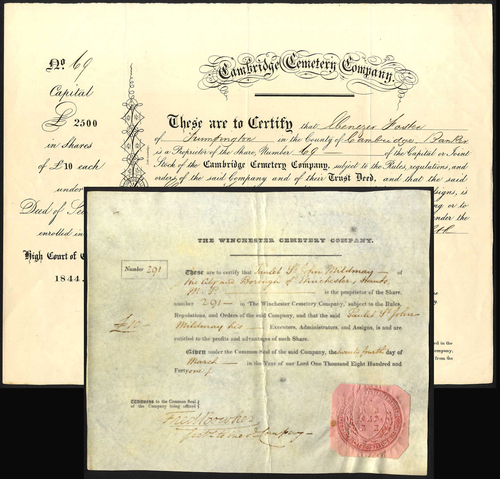 No. 69
Capital
£ 2500
in Shares
of £10 each
under
Deed of Se
enrolled in
High Court of
1844.
Cambridge Cemetery Company.
These are to Certify that Ebenezer Foster
of Trumpington in the County of Cambridge, Banker
is a Proprietor of the Share, Number 69 of the Capital or Joint
Stock of the Cambridge Cemetery Company, subject to the Rules, regulations, and
orders of the said Company and of their Trust Deed, and that the said
signs, is
ng or to
under the
THE WINCHESTER CEMETERY COMPANY.
Number 291
£10
These are to certify that Paulet St. John Mildmay of
the City and Borough of Winchester,
M.P. is the proprietor of the Share
number 291 in 'The Winchester Cemetery Company,' subject to the Rules,
Regulations, and Orders of the said Company, and that the said Paulet St John
Mildmay his Executors, Administrators, and Assigns, is and are
entitled to the profits and advantages of such Share.
Given under the Common Seal of the said Company, the twenty fourth day of
March in the Year of our Lord One Thousand Eight Hundred and
Forty one.
WITNESS to the Common Seal
of the Company being affixed